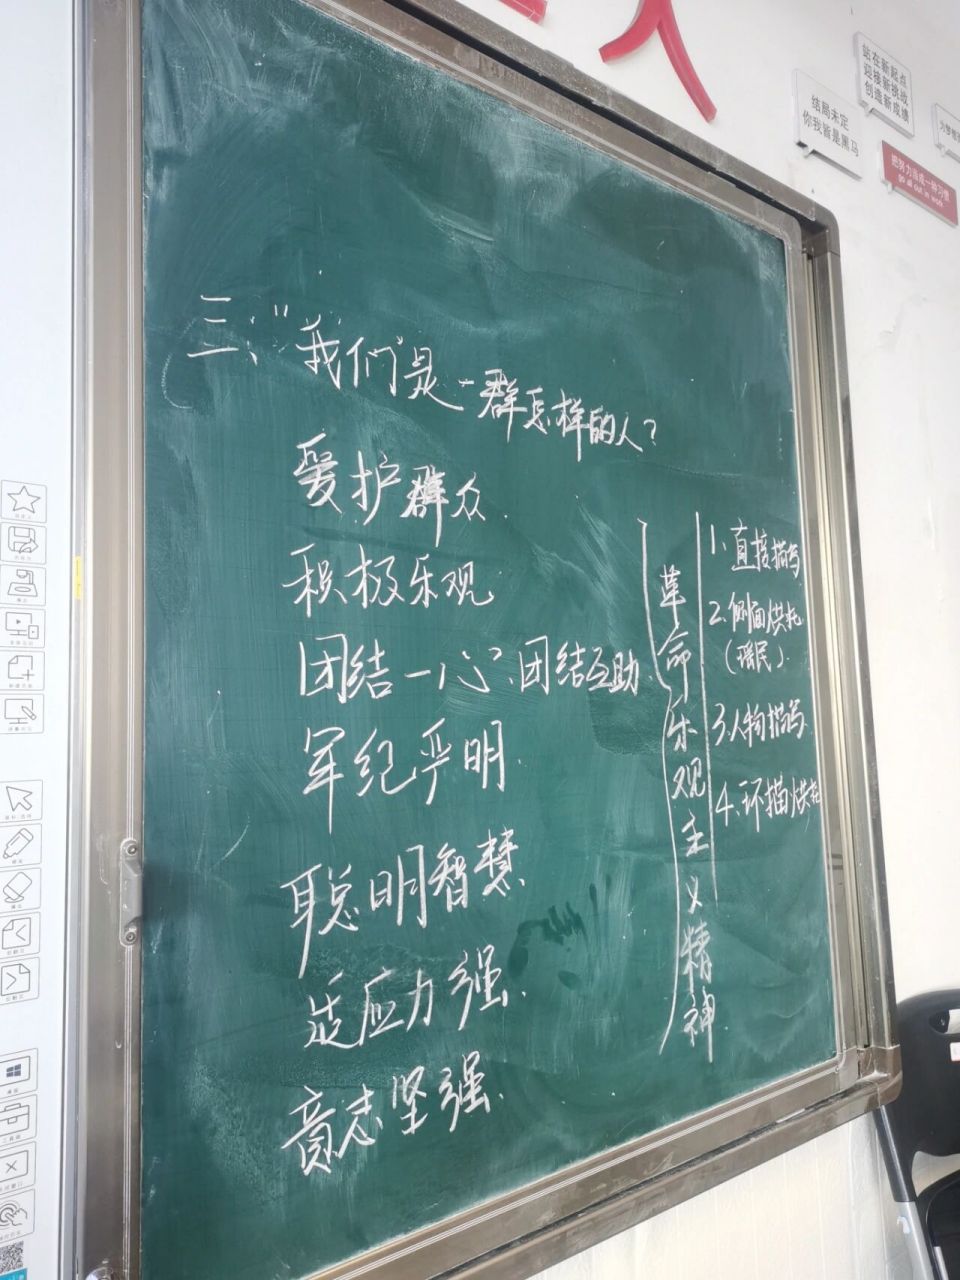 人
站在新起点
迎接新挑战
创造新成绩
结局未定
你我皆是黑马
把努力当成一种习惯
go all out in work
三、"我们"是一群怎样的人？
爱护群众.
积极乐观
团结一心、团结互助.
军纪严明.
聪明智慧.
适应力强.
意志坚强.
革命乐观主义精神
1、直接描写
2、侧面烘托
（瑶民）.
3、人物描写.
4、环描烘托